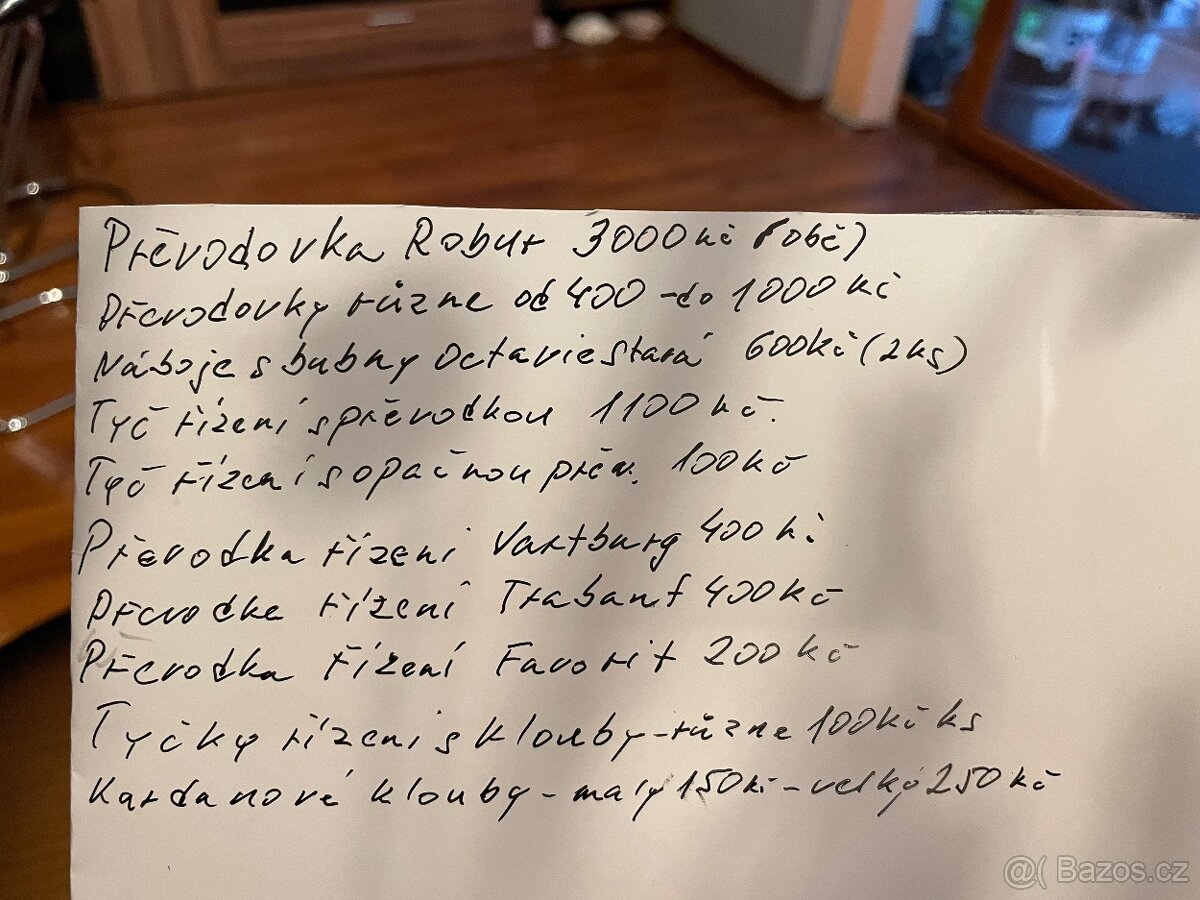 Převodovka Robur 3000 Kč (obě)
Převodovky různe od 400 - do 1000 Kč
Náboje s bubny Octavie Stará 600 Kč (2ks)
Tyč řízení s převodkou 1100 Kč.
Tyč řízení s opačnou přev. 100 Kč
Převodka řízení Vartburg 400 Kč
Převodka řízení Trabant 400 Kč
Převodka řízení Favorit 200 Kč
Tyčky řízení s klouby - různe 100 Kč ks
Kardanové klouby - malý 150 Kč - velký 250 Kč
@( Bazos.cz